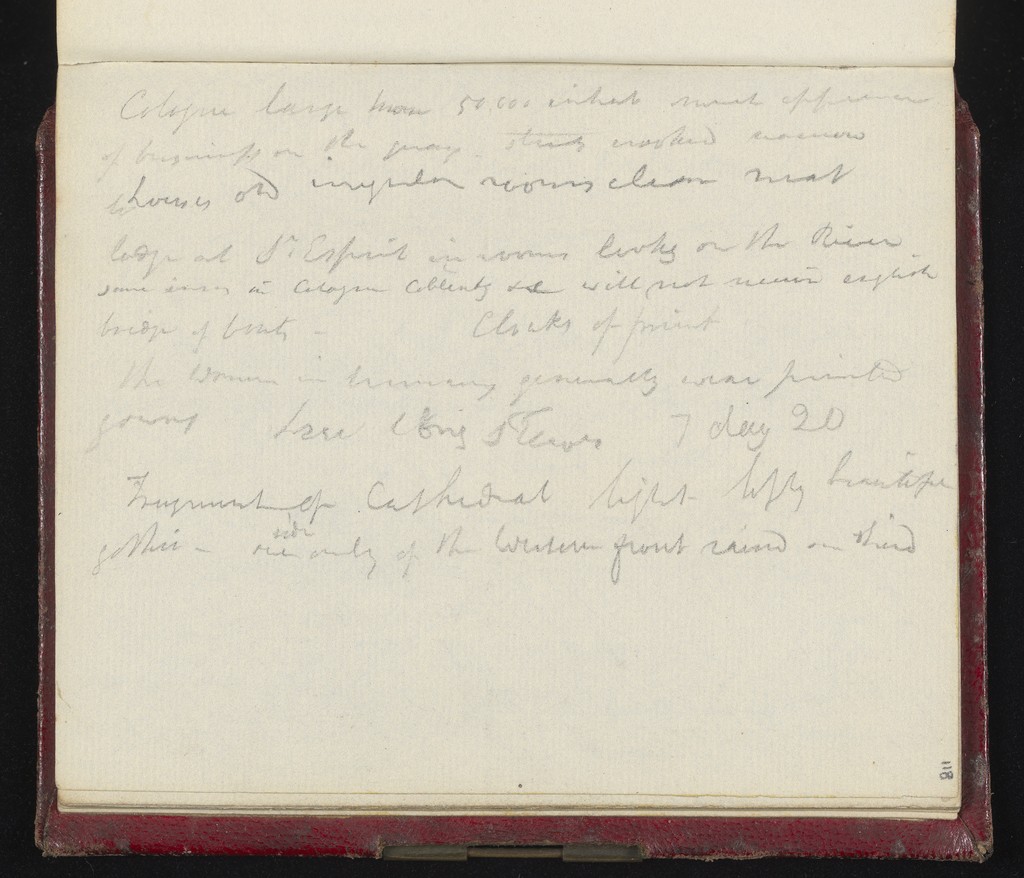 Cologne large town 50,000 inhab much appearance
of business on the quays. streets crooked narrow
houses old irregular rooms clean neat
lodge at St Esprit in rooms looks on the River
some inns in Cologne Coblentz &c will not receive english
bridge of boats - Cloaks of print
the Women in Germany generally wear printed
gowns long Sleeves 7 day 20
Fragment of Cathedral light lofty beautiful
gothic - side
only of the Western front raised one third
118